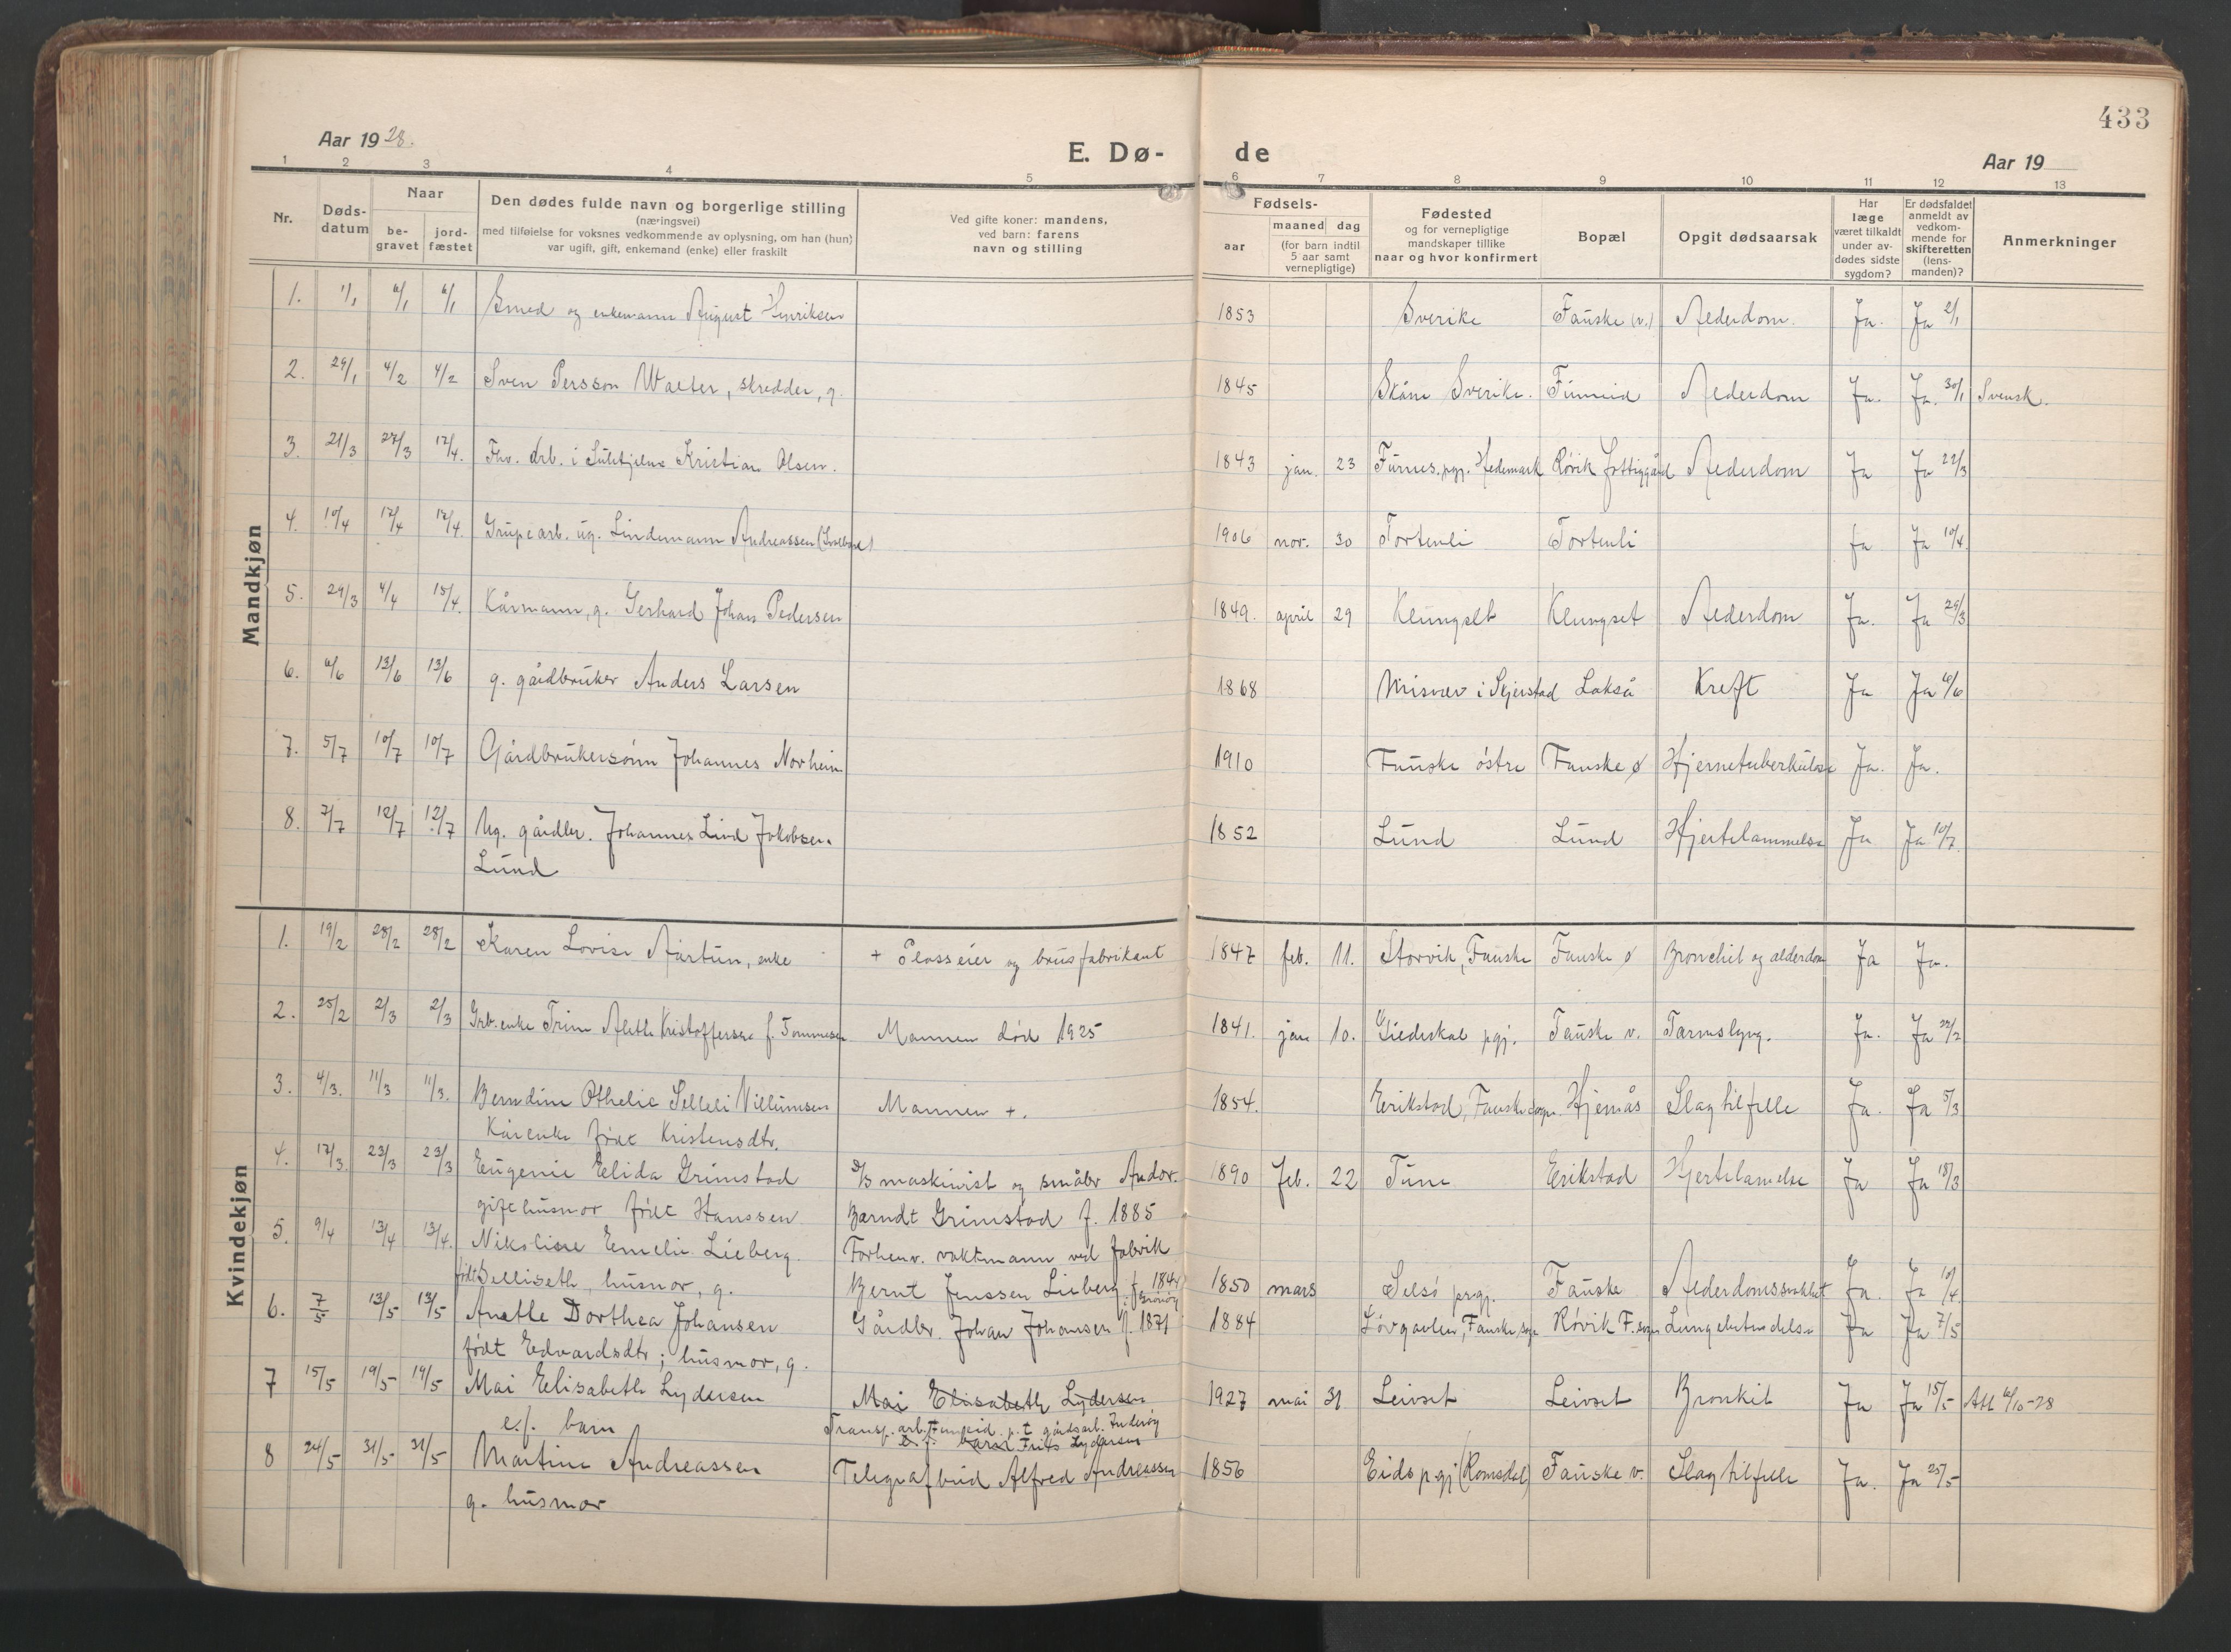 433
Aar 1928.
E. Dø-
de
Aar 19
1 2 3 4 5 6 7 8 9 10 11 12 13
Nr.
Døds-
datum
Naar
be-
gravet
jord-
fæstet
Den dødes fulde navn og borgerlige stilling
(næringsvei)
med tilføielse for voksnes vedkommende av oplysning, om han (hun)
var ugift, gift, enkemand (enke) eller fraskilt
Ved gifte koner: mandens,
ved barn: farens
navn og stilling
Fødsels-
aar
maaned dag
(for barn indtil
5 aar samt
vernepligtige)
Fødested
og for vernepligtige
mandskaper tillike
naar og hvor konfirmert
Bopæl
Opgit dødsaarsak
Har
læge
været tilkaldt
under av-
dødes sidste
sygdom?
Er dødsfaldet
anmeldt av
vedkom-
mende for
skifteretten
(lens-
manden)?
Anmerkninger
Mandkjøn
1. 1/1 6/1 6/1 Smed og enkemann August Henriksen 1853 Sverike Fauske (v.) Alderdom. Ja. Ja 2/1
2. 29/1 4/2 4/2 Sven Persson Walter, skredder, g. 1845 Skåne Sverike. Finneid Alderdom Ja. Ja. 30/1 Svensk.
3. 21/3 27/3 12/4. Fhv. arb. i Sulitjelma Kristian Olsen. 1843 jan. 23 Furnes. pgj. Hedemark Røvik fattiggård Alderdom Ja Ja 22/3
4. 10/4 12/4 12/4. Grupearb. ug. Lindemann Andreassen 1906 nov. 30 Tortenli Tortenli Ja Ja 10/4
5. 29/3 4/4 15/4. Kårmann, g. Gerhard Johan Pedersen 1849. april 29 Klungset Klungset Alderdom Ja. Ja 29/3
6. 6/6 13/6 13/6 g. gårdbruker Anders Larsen 1868 Misvær i Skjerstad Lakså Kreft Ja Ja 6/6
7. 5/7 10/7 10/7 Gårdbrukersønn Johannes Norheim 1910 Fauske østre Fauske ø Hjernetuberkulose Ja. Ja.
8. 7/7 12/7 12/7 Ug. gårdbr. Johannes Lind Jakobsen 1852 Lund Lund Hjertelammelse Ja Ja 10/7.
Lund
Kvindekjøn
1. 19/2 28/2 28/2 Karen Lovise Aartun, enke + Plasseier og brusfabrikant 1847 feb. 11. Storvik, Fauske Fauske ø Bronchit og alderdom Ja Ja.
2. 25/2 2/3 2/3 Grb.enke Trine Aletle Kristoffersen f. Tommesen Mannen død 1925 1841. jan 10. Gildeskål pgj. Fauske v. Tarmslyng. Ja. Ja 28/2
3. 4/3. 11/3 11/3. Berndine Othelie Selleli Villumsen Mannen +. 1854. Erikstad, Fauske sogn. Hjemås Slagtilfelle Ja. Ja 5/3
Kårenke født Kristensdtr.
4. 17/3. 23/3 23/3 Eugenie Elida Grimstad D/S maskinist og småbr Andor 1890 Feb. 22 Tune Erikstad Hjertelamelse Ja Ja 18/3
gift husmor født Hanssen Berndt Grimstad f. 1885
5. 9/4 13/4 13/4. Nikoline Emelie Lieberg. Forhenv. vaktmann ved fabrik
født Selliseth, husmor, g. Bernt Jenssen Lieberg f. 1844 1850 mars Selsø prgj. Fauske Alderdomssvakhet Ja. Ja 10/4.
6. 7/5 13/5 13/5 Anette Dorthea Johansen Gårdbr. Johan Johansen f. 1871 1884 Løvgavlen, Fauske sogn Røvik F. sogn Lungebetendelse Ja Ja 7/5
født Edvardsdtr; husmor, g.
7 15/5 19/5 19/5 Mai Elisabeth Lydersen Mai Elisabeth Lydersen 1927 mai 31 Leivset Leivset Bronkit Ja Ja 15/5 Att 6/10-28
e.f. barn Transp. arb. Funneid p.t gårdsarb. Inderøy
e.f. barn Frits Lydersen
8 24/5 31/5 31/5 Martine Andreassen Telegrafbud Alfred Andreassen 1856 Eids pgj (Romsdal) Fauske v. Slagtilfelle Ja. Ja 25/5
g. husmor